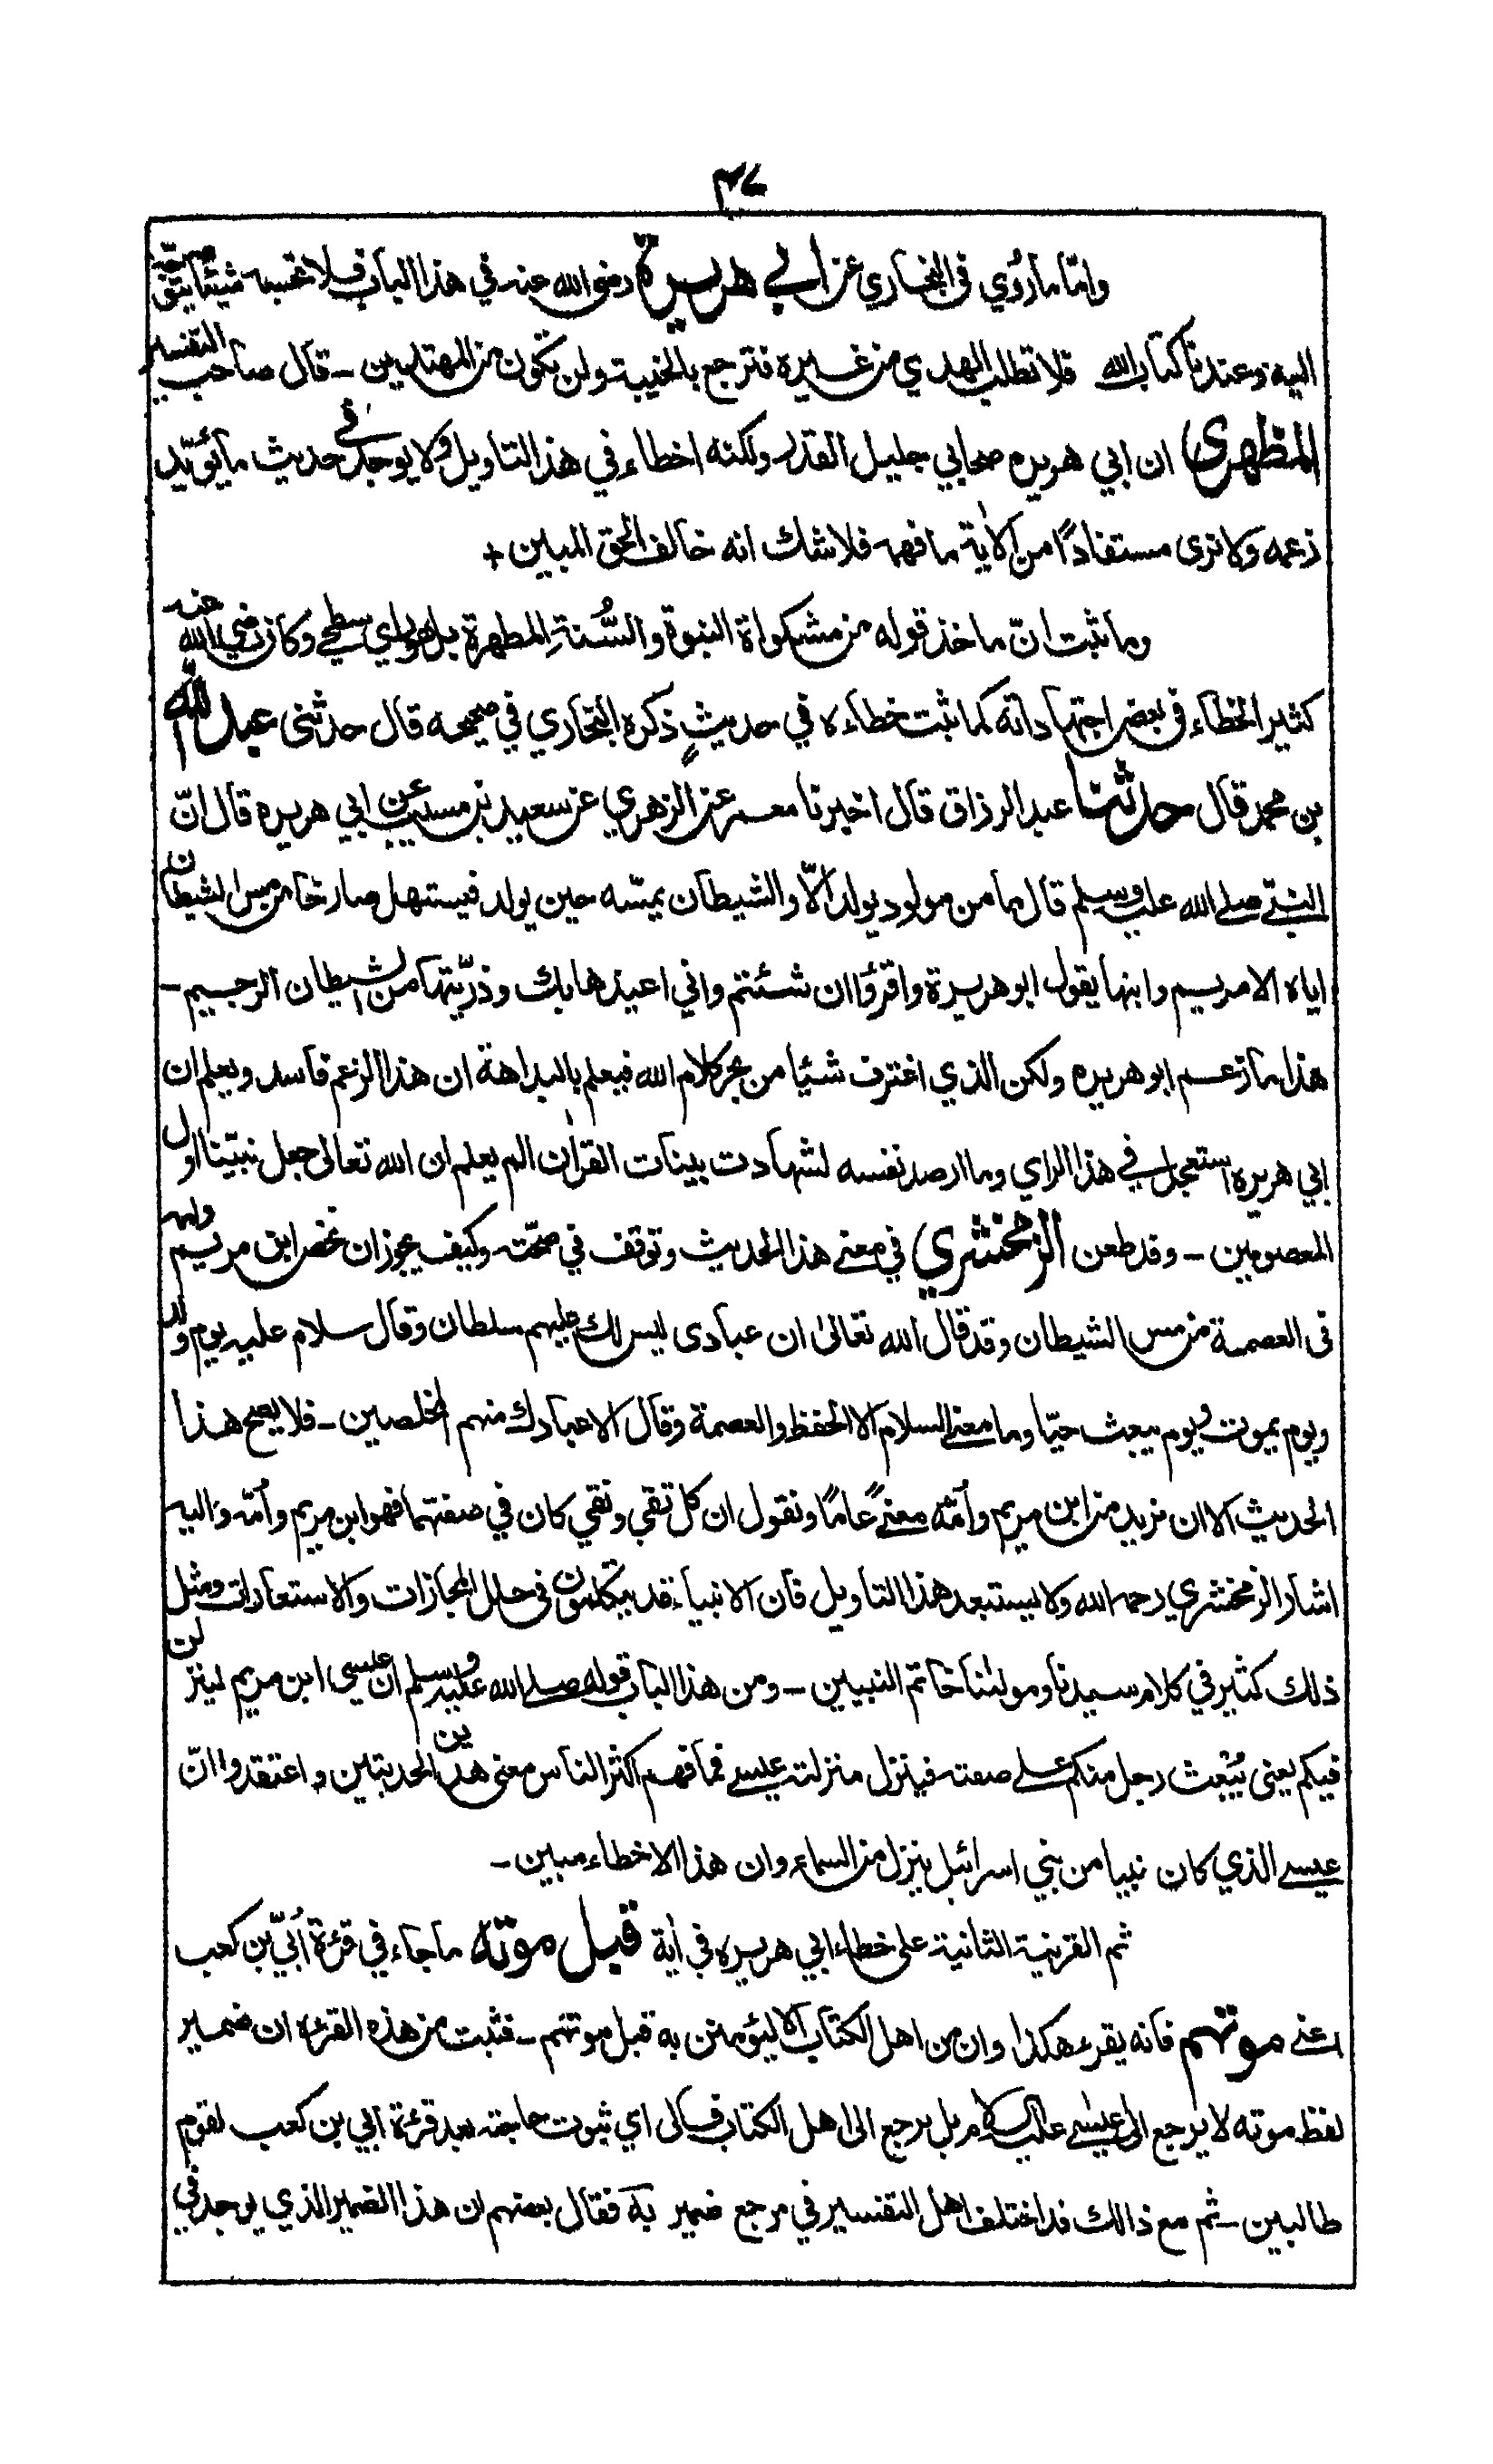 ٤٧
وامّا ما رُوي فى البخاري عن ابي هريرة رضى الله عنه في هذا الباب فلا تحسبه شيئًا يتوجّه
اليه وعندنا كتاب الله فلا تطلب الهدي من غيره فترجع بالخيبة ولن تكون من المهتديين - قال صاحب التفسير
المظهري ان ابي هريره صحابي جليل القدر ولكنه اخطاء في هذا التاويل ولا يوجد في حديث ما يُؤيّد
زعمه ولا نرى مستفادًا من الاٰية ما فهمه فلا شك انه خالف الحق المبين +
وما ثبت انّ ماخذ قوله من مشكواة النبوة والسُّنةِ المطهرة بل هو راي سطحي وكان رضي الله عنه
كثير الخطاء فى بعض اجتهاداته كما ثبت خطاءه في حديثٍ ذكره البخاري في صحيحه قال حدثنى عبد الله
بن محمد قال حدثنا عبد الرزاق قال اخبرنا معمر عن الزهري عن سعيد بن مسيب عن ابي هريره قال انّ
النبيّ صلى الله عليه وسلم قال ما من مولود يولد الّا والشيطان يمسّه حين يولد فيستهل صارخا من مس الشيطان
اياه الا مريم وابنها يقول ابو هريرة واقرؤا ان شئتم واني اعيذها بك وذرّيتها من الشيطان الرجيم -
هذا ما زعم ابو هريره ولكن الذي اغترف شئيا من بحر كلام الله فيعلم بالبداهة ان هذا الزعم فاسد ويعلم ان
ابي هريره استعجل في هذا الراي وما ارصد نفسه لشهادت بينات القراٰن الم يعلم ان الله تعالى جعل نبيّنا اول
المعصومين - وقد طعن الزمخشري في معنے هذا الحديث وتوقف في صحّته وكيف يجوز ان يخص ابن مريم وامه
فى العصمة من مس الشيطان وقد قال الله تعالىٰ ان عبادى ليس لك عليهم سلطان وقال سلام عليه يوم ولد
ويوم يموت ويوم يبعث حيّا وما معنے السلام الا الحفظ والعصمة وقال الا عبادك منهم المخلصين - فلا يصح هذا
الحديث الا ان نريد من ابن مريم وأمّه معنےً عامًا ونقول ان كل تقي ونقي كان في صفتهما فهو ابن مريم وأمّه واليه
اشار الزمخشري رحمه الله ولا يستبعد هذا التاويل فان الانبياء قد يتكلمون فى حلل المجازات والاستعارات ومثل
ذلك كثير في كلام سيدنا ومولٰنا خاتم النبيين - ومن هذا الباب قوله صلے الله عليه وسلم ان عيسي ابن مريم لينزلن
فيكم يعنى يُبْعث رجل منكم علے صفته فينزل منزلته عيسے فما فهم اكثر الناس معنى هذين الحديثين واعتقدوا انّ
عيسے الذي كان نبيا من بني اسرائيل ينزل من السماء وان هذا الا خطاء مبين -
ثم القرينة الثانية على خطاء ابي هريره في اٰية قبل موته ما جاء في قرءة أُبيّ بن كعب
اعنے موتهم فانه يقرء هكذا وان من اهل الكتاب الا ليؤمنن به قبل موتهم - فثبت من هذه القرءة ان ضمير
لفظ موته لا يرجع الى عيسے عليه السلام بل يرجع الى اهل الكتاب فالى اي ثبوت حاجته بعد قرءة ابي بن كعب لقوم
طالبين - ثم مع ذالك قد اختلف اهل التفسير في مرجع ضمير به فقال بعضهم ان هذا الضمير الذي يوجد في